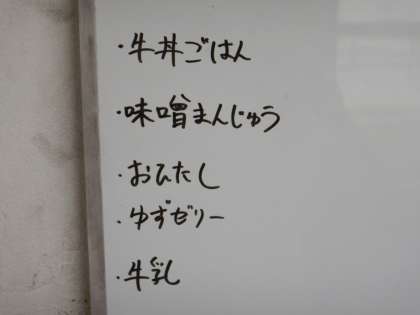 ・牛丼ごはん
・味噌まんじゅう
・おひたし
・ゆずゼリー
・牛乳